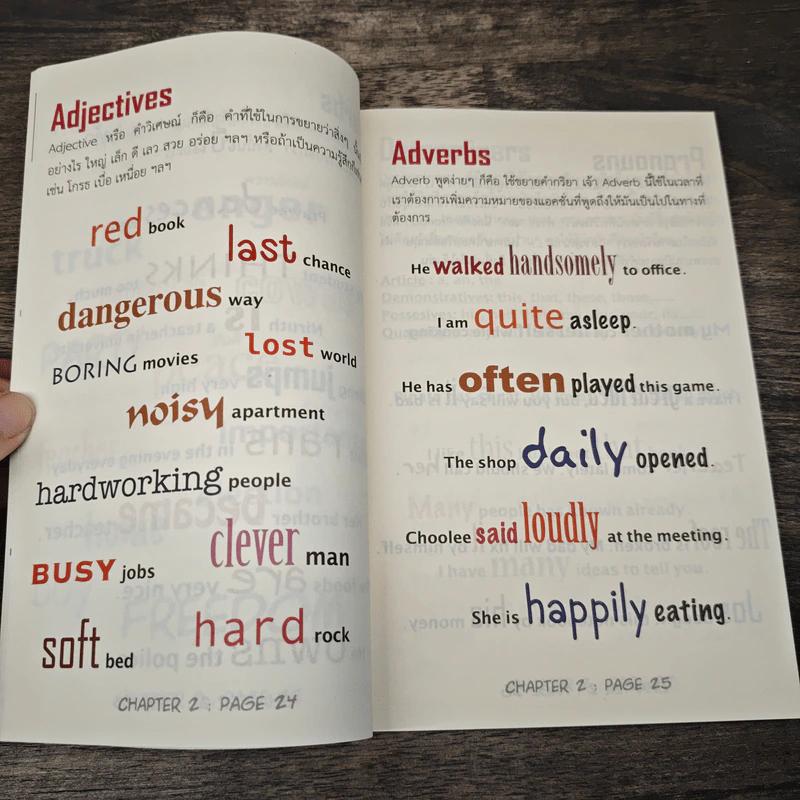 Adjectives
Adjective หรือ คำวิเศษณ์ ก็คือ คำที่ใช้ในการขยายว่าสิ่งๆ
อย่างไร ใหญ่ เล็ก ดี เลว สวย อร่อย ฯลฯ หรือถ้าเป็นความรู้สึก
เช่น โกรธ เบื่อ เหนื่อย ฯลฯ
red book
last chance
dangerous way
BORING movies
lost world
noisy apartment
hardworking people
clever man
BUSY jobs
soft bed
hard rock
CHAPTER 2 ; PAGE 24
Adverbs
Adverb พูดง่ายๆ ก็คือ ใช้ขยายคำกริยา เจ้า Adverb นี้ใช้ในเวลาที่
เราต้องการเพิ่มความหมายของแอคชั่นที่พูดถึงให้มันเป็นไปในทางที่
ต้องการ
He walked handsomely to office.
I am quite asleep.
He has often played this game.
The shop daily opened.
Choolee said loudly at the meeting.
She is happily eating.
CHAPTER 2 ; PAGE 25